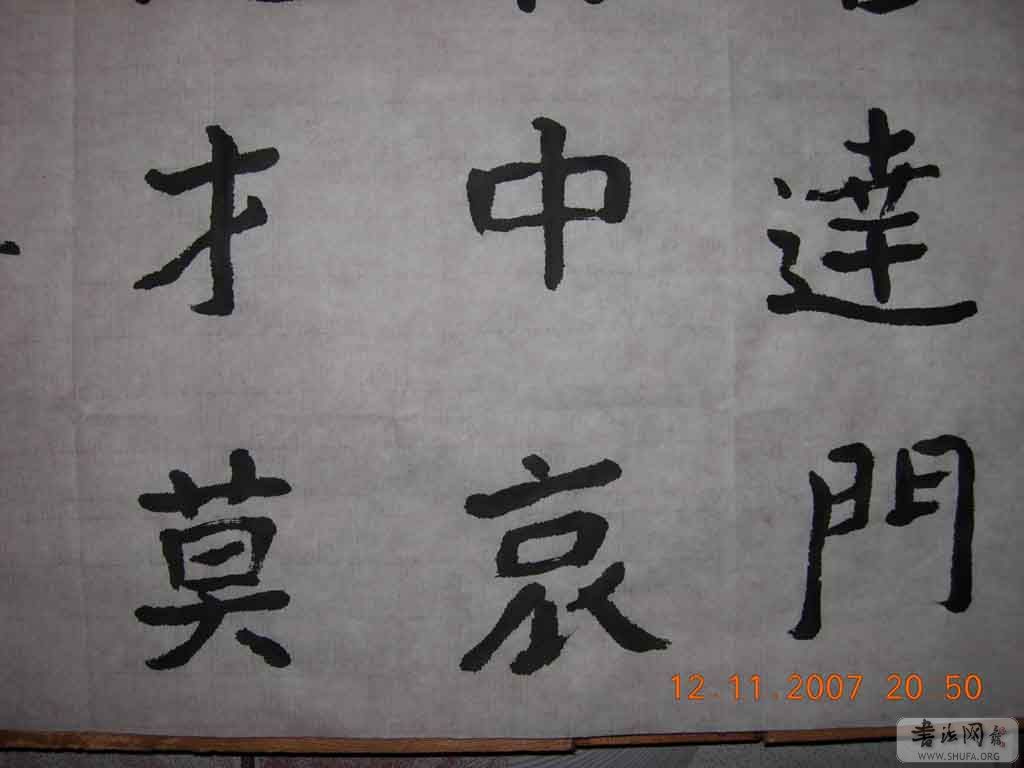 達門
中哀
才莫
12.11.2007 20 50
书法网
WWW.SHUFA.ORG